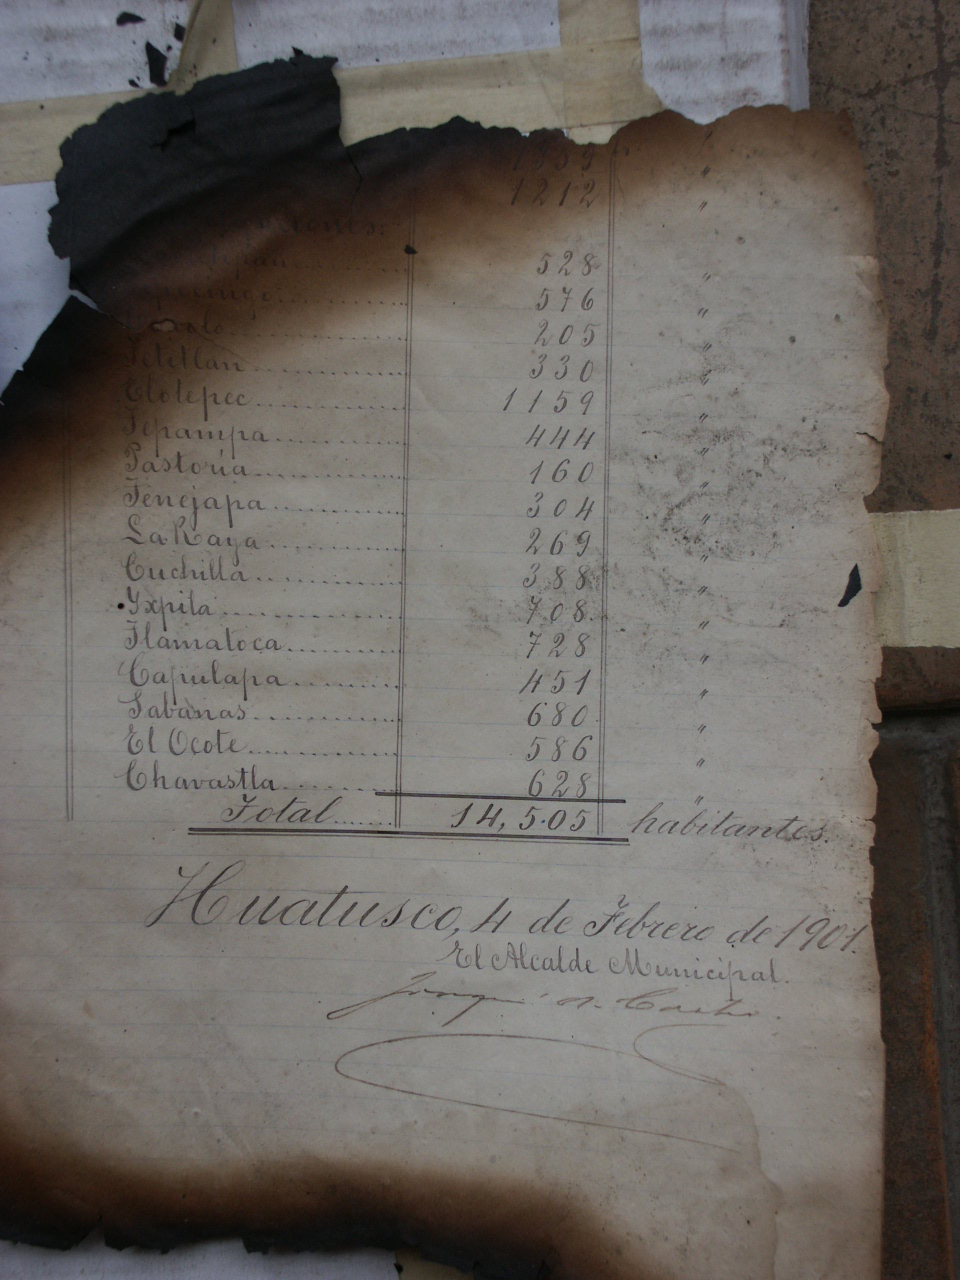 1359 "
1212 "
528 "
576 "
205 "
Tetitlan 330 "
Elotepec 1159 "
Tepampa 444 "
Pastoría 160 "
Tenejapa 304 "
La Raya 269 "
Cuchilla 388 "
Yxpila 708 "
Ilamatoca 728 "
Capulapa 451 "
Sabanas 680 "
El Ocote 586 "
Chavastla 628 "
Total 14,505 habitantes.
Huatusco, 4 de Febrero de 1901.
El Alcalde Municipal.